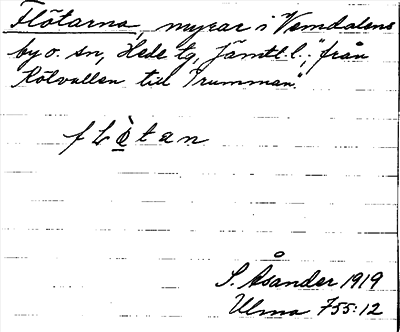 Flötarna, myrar i Vemdalens
by o. sn, Hede tg, Jämtl. l.; "från
Rötvallen till Trumman".
fLò̱tan
S. Åsander 1919
Ulma 755:12